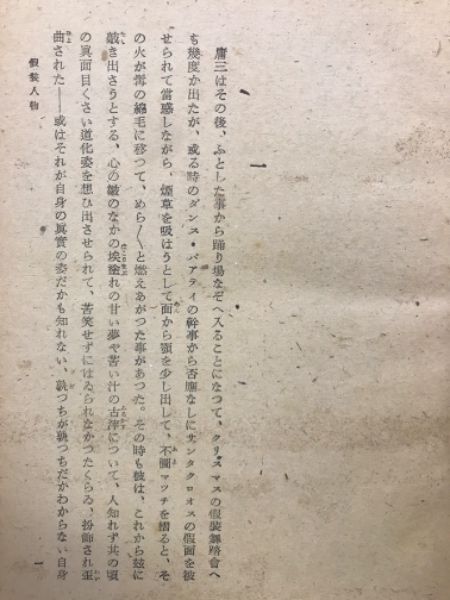 一
庸三はその後、ふとした事から踊り場なぞへ入ることになつて、クリスマスの假裝舞踏會へ
も幾度か出たが、或る時のダンス・パアティの幹事から否應なしにサンタクロオスの假面を被
せられて當惑しながら、煙草を吸はうとして面から顎を少し出して、不圖マツチを摺ると、そ
の火が髯の綿毛に移つて、めら〱と燃えあがつた事があつた。その時も彼は、これから玆に
敲き出さうとする、心の皺のなかの埃塗れの甘い夢や苦い汁の古滓について、人知れず其の頃
の眞面目くさい道化姿を想ひ出させられて、苦笑せずにはゐられなかつたくらゐ、扮飾され歪
曲された――或はそれが自身の眞實の姿だかも知れない、孰つちが孰つちだかわからない自身
假裝人物
一